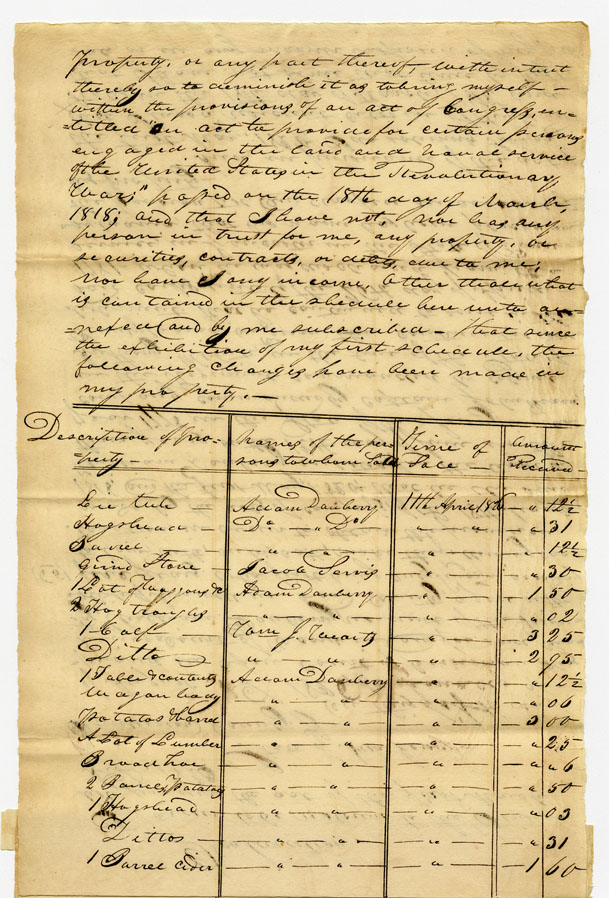 property, or any part thereof, with intent
thereby so to deminish it as to bring myself -
within the provisions of an act of Congress, en=
=titled "an act to provide for certain persons
engaged in the land and naval service
of the United States in the Revolutionary
War;" passed on the 18th day of March,
1818; and that I have not, nor has any
person in trust for me, any property, or
securities, contracts, or debts, due to me;
nor have I any income, Other than what
is contained in the schedule here unto an=
=nexed and by me subscribed - that since
the exhibition of my first schedule, the
following changes have been made in
my property. -
Description of pro=perty - | Names of the persons to whom Sold | Time of Sale - | Amount Received -
tub - | Adam Danberry | 11th April | - " 12½
Hogshead - | Do - " Do | " " | - " 31
Barrel - | " " | " | " 12½
Grind Stone - | Jacob Servis | - " - | " 30
1 Lot of &c | Adam Danberry | " | 1 50
2 Hog troughs | " " | " | " 02
1 Calf - | J. | - " - | 3 25
Ditto - | " " | " | 2 95
1 Table & contents | Adam Danberry | " | " 12½
Wagan body | " " | " | " 06
Potatos & barrel | - " " | - " - | 3 00
A Lot of Lumber | - " " | - " - | " 25
Broad hoe - | - " " - | - " - | - " 6
2 Barrels Potatoes | - " " - | - " - | - " 50
1 Hogshead - | - " " - | - " - | - " 03
Dittos - | - " " - | - " - | - " 31
1 Barrel cider | - " " - | - " - | - 1 60